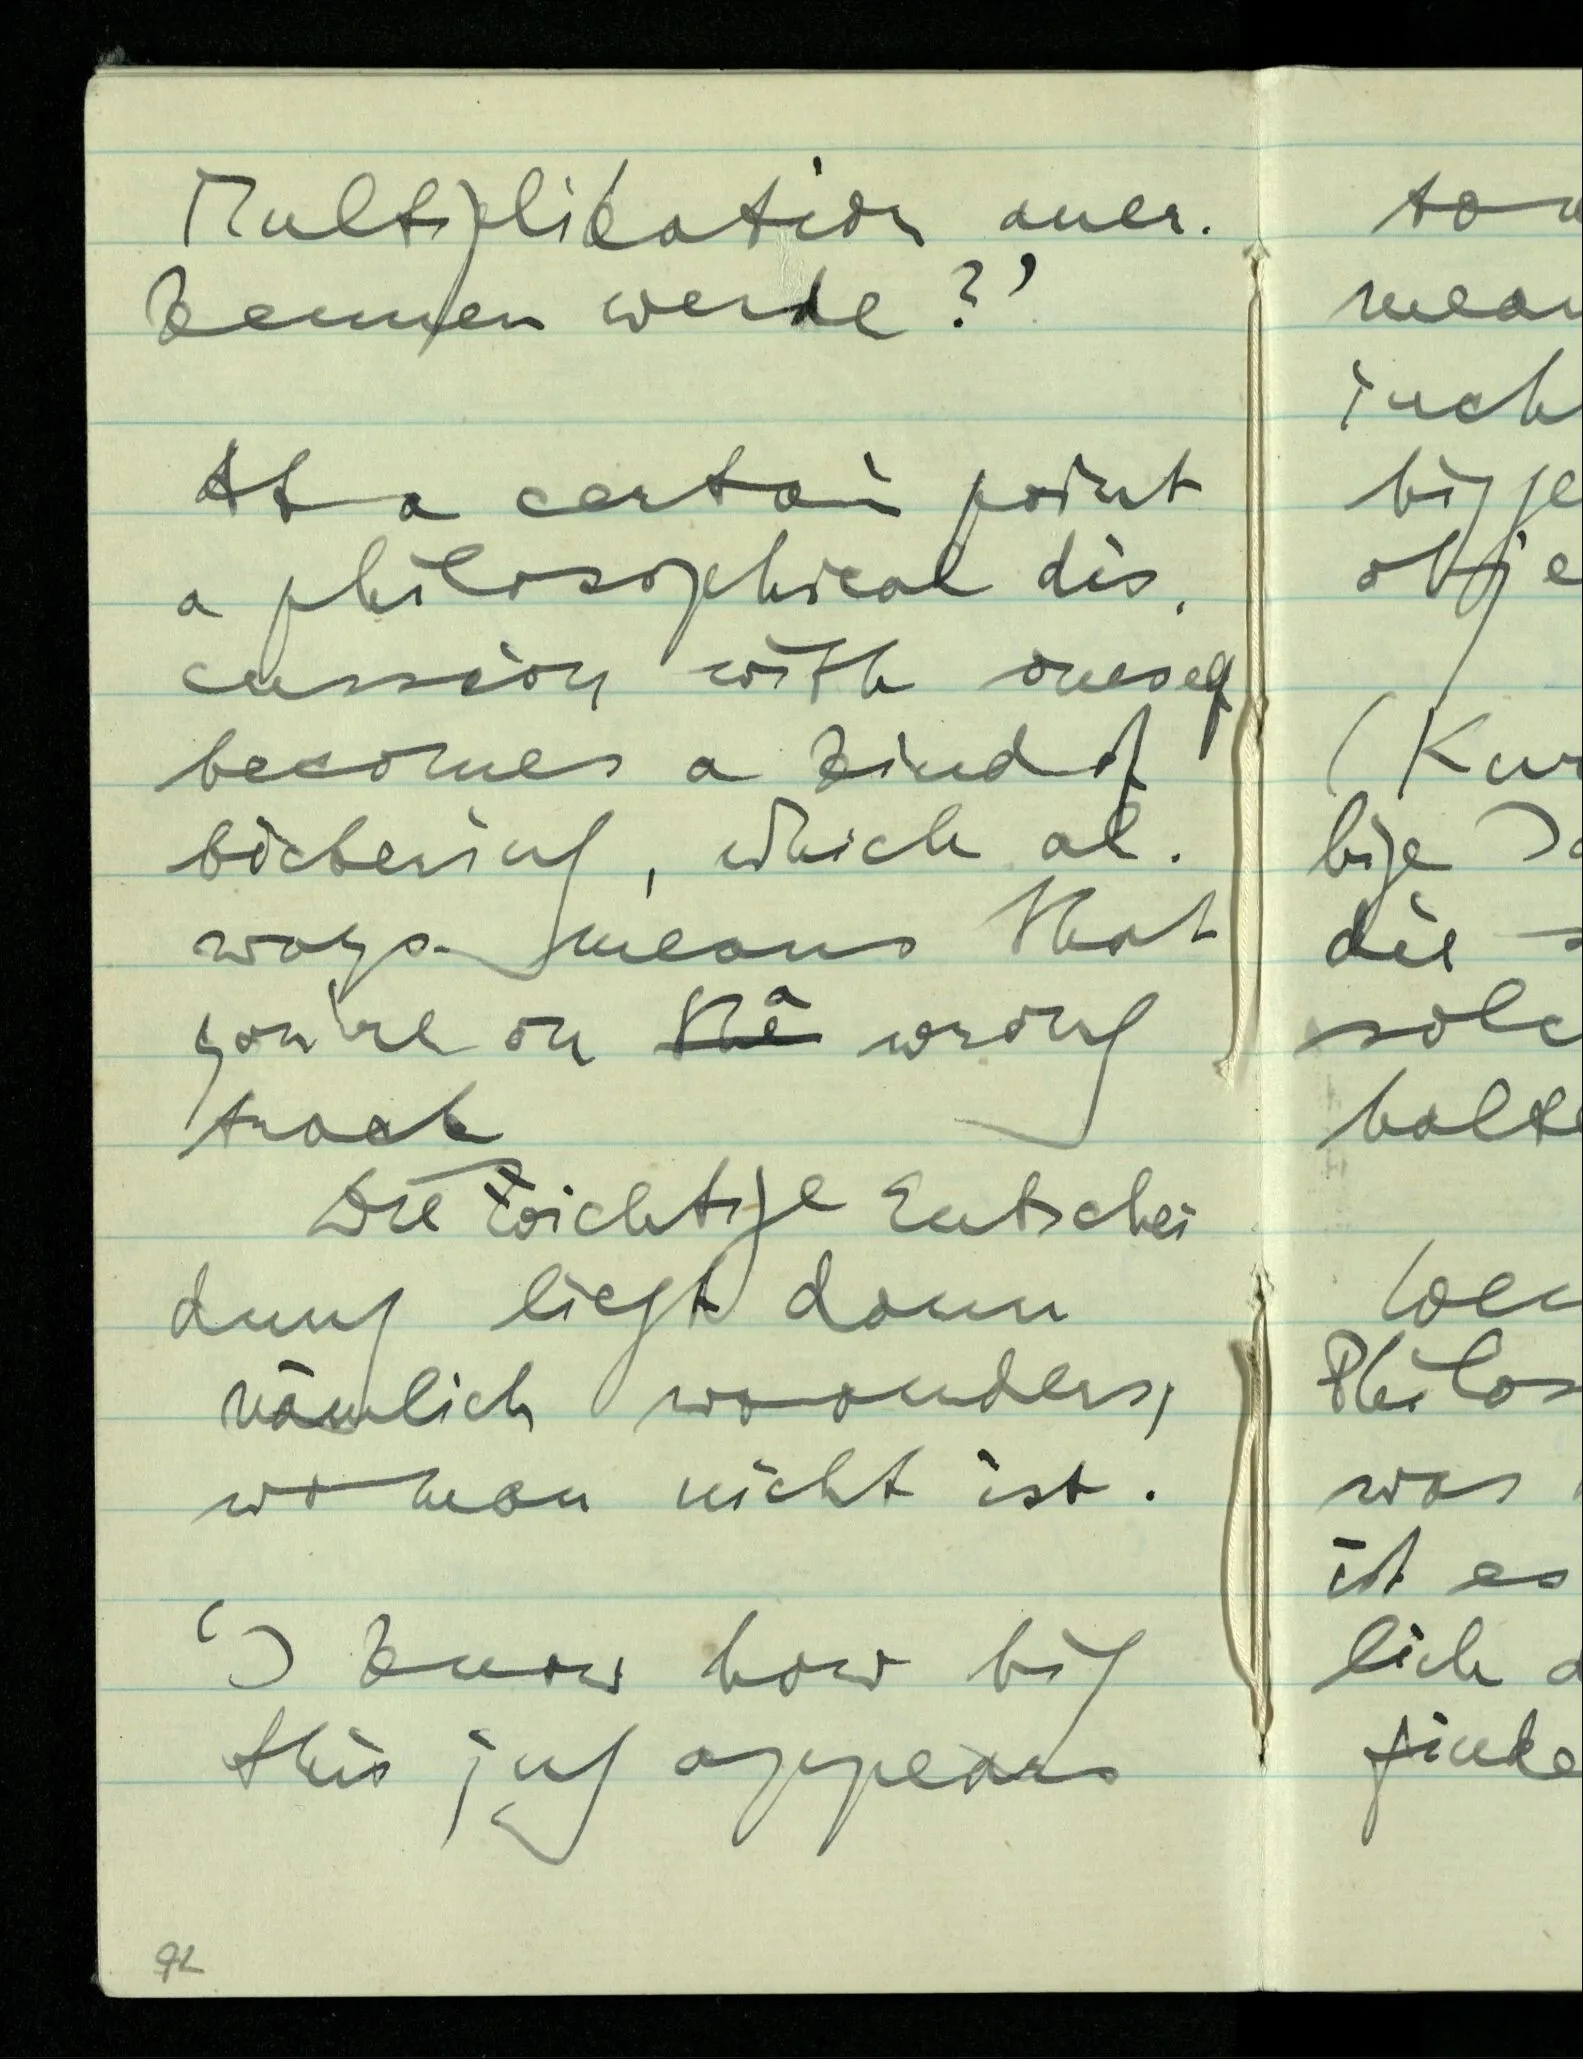 Multiplikation aner.
kennen werde?'
At a certain point
a philosophical dis.
cussion with oneself
becomes a kind of
bickering, which al.
ways means that
you're on the a wrong
track
Die wichtige Entschei
dung liegt dann
nämlich woanders,
wo man nicht ist.
'I know how big
this jug appears
92
to
mean
inch
bigge
obje
(Kur
bige Ja
die
solc
halte
Wen
Philos
was
ist es
lich d
finde